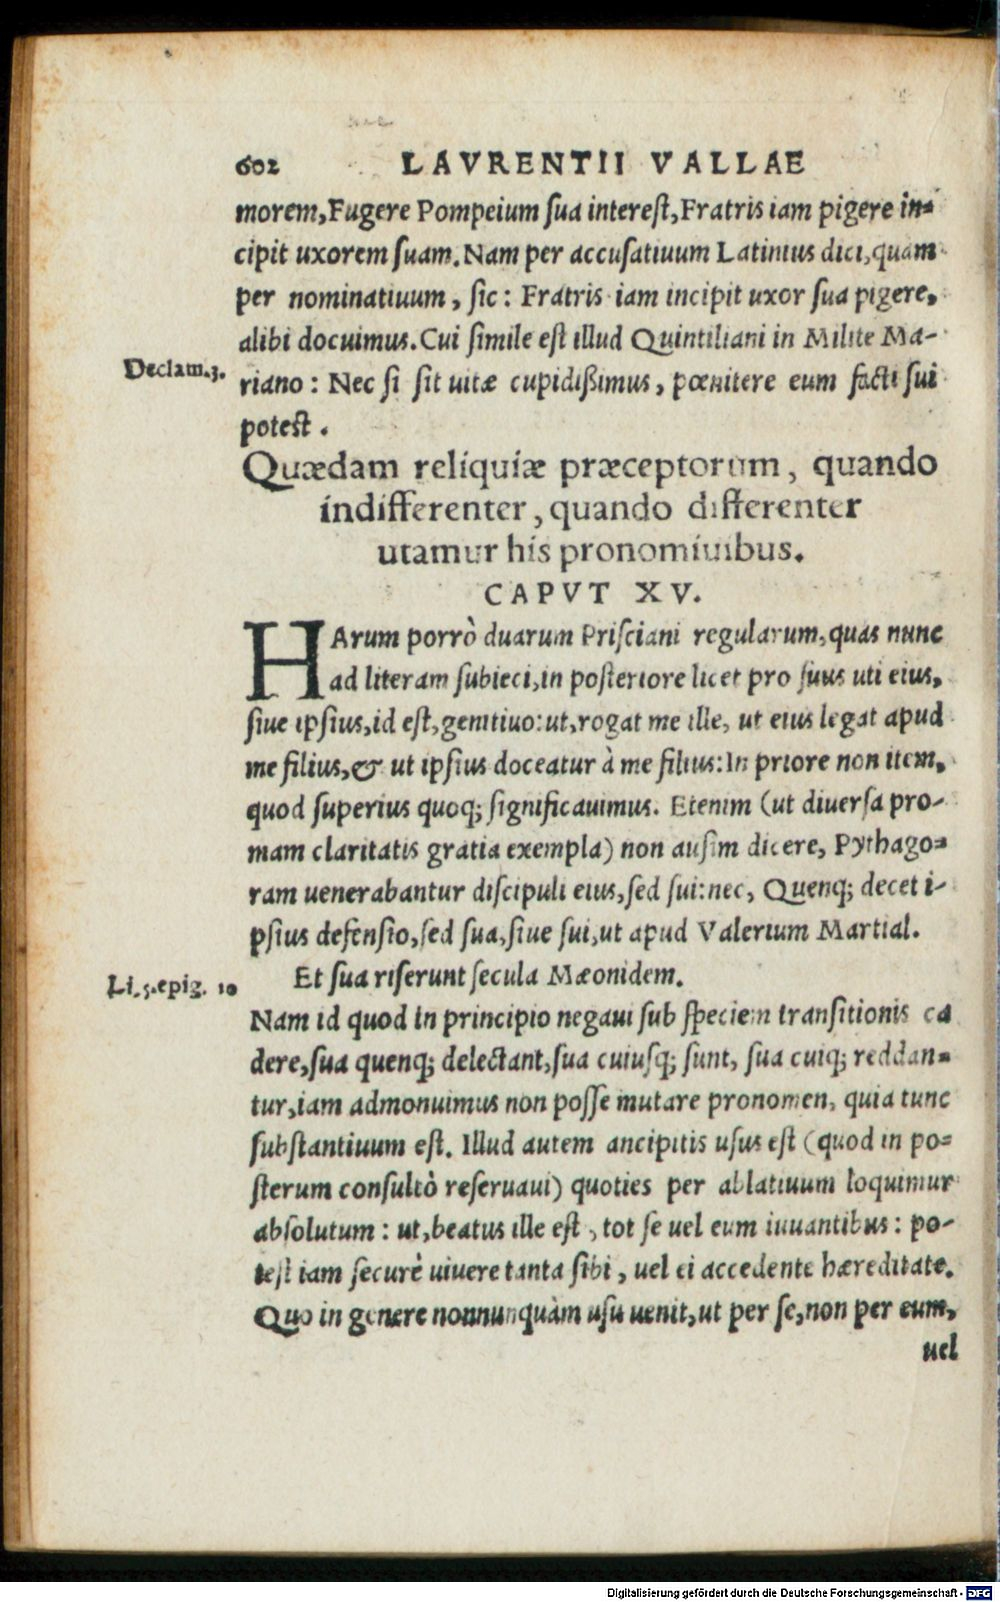 602 LAVRENTII VALLAE
morem, Fugere Pompeium sua interest, Fratris iam pigere in-
cipit uxorem suam. Nam per accusatiuum Latinius dici, quam
per nominatiuum, sic: Fratris iam incipit uxor sua pigere,
alibi docuimus. Cui simile est illud Quintiliani in Milite Ma-
Declam.3.
riano: Nec si sit uitæ cupidißimus, pœnitere eum facti sui
potest.
Quædam reliquiæ præceptorum, quando
indifferenter, quando differenter
utamur his pronominibus.
CAPVT XV.
HArum porrò duarum Prisciani regularum, quas nunc
ad literam subieci, in posteriore licet pro suus uti eius,
siue ipsius, id est, genitiuo: ut, rogat me ille, ut eius legat apud
me filius, & ut ipsius doceatur à me filius: In priore non item,
quod superius quoq; significauimus. Etenim (ut diuersa pro-
mam claritatis gratia exempla) non ausim dicere, Pythago-
ram uenerabantur discipuli eius, sed sui: nec, Quenq; decet i-
psius defensio, sed sua, siue sui, ut apud Valerium Martial.
Li.5.epig. 10
Et sua riserunt secula Mæonidem.
Nam id quod in principio negaui sub speciem transitionis ca
dere, sua quenq; delectant, sua cuiusq; sunt, sua cuiq; reddan-
tur, iam admonuimus non posse mutare pronomen, quia tunc
substantiuum est. Illud autem ancipitis usus est (quod in po-
sterum consultò reseruaui) quoties per ablatiuum loquimur
absolutum: ut, beatus ille est, tot se uel eum iuuantibus: po-
test iam securè uiuere tanta sibi, uel ei accedente hæreditate.
Quo in genere nonnunquàm usu uenit, ut per se, non per eum,
uel
Digitalisierung gefördert durch die Deutsche Forschungsgemeinschaft - DFG